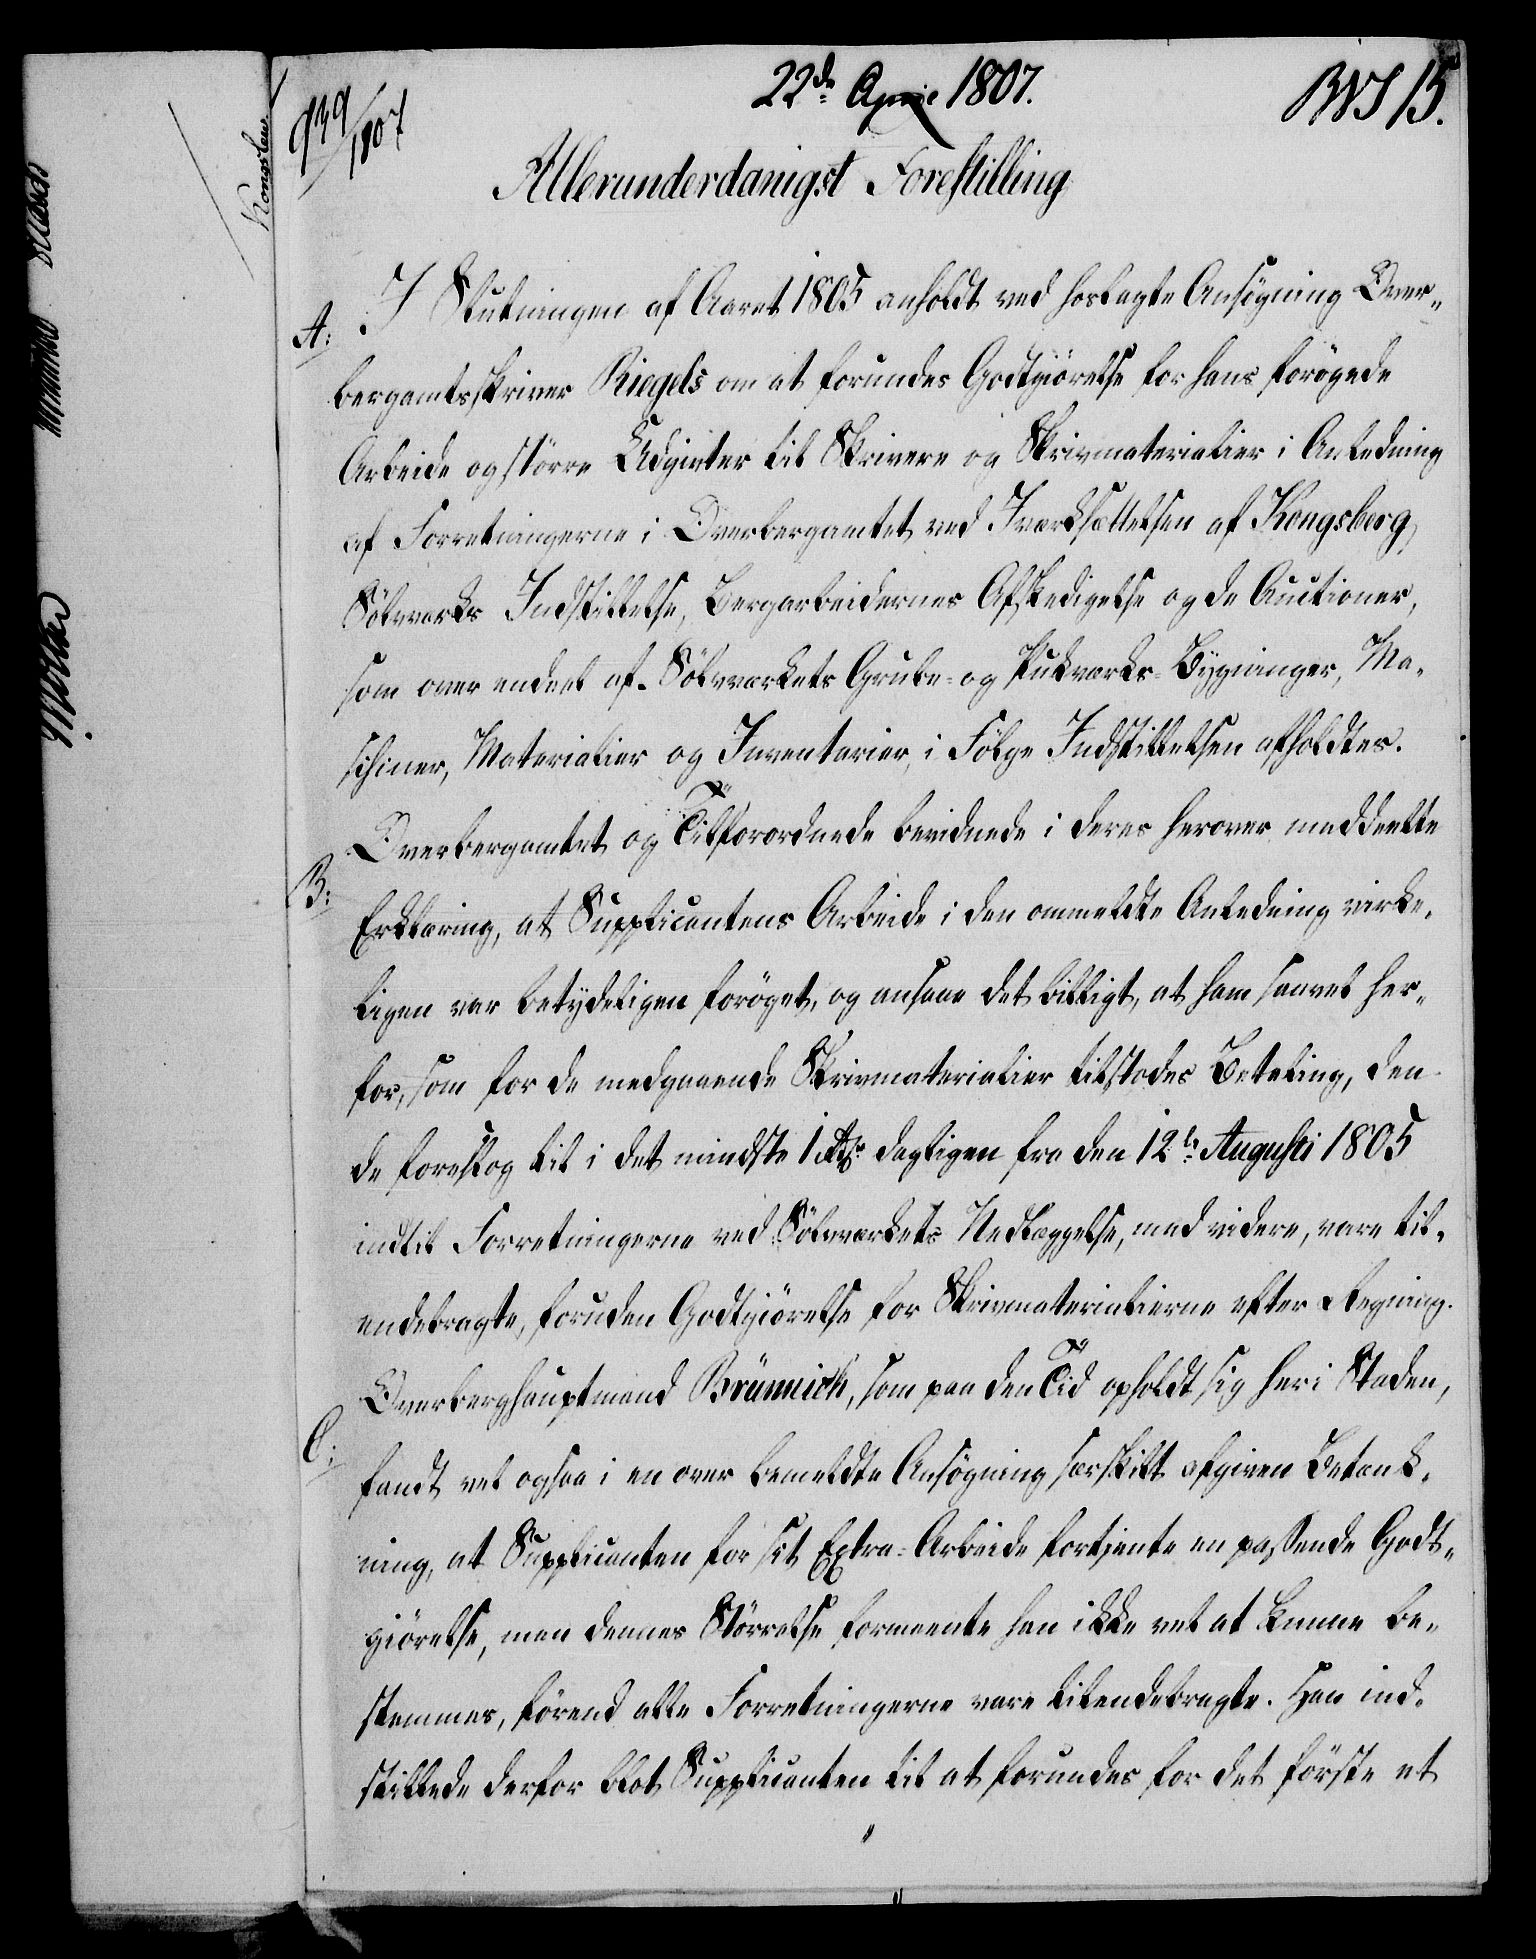 22de April 1807.
939/1807
Allerunderdanigst Forestilling
A:
I Slutningen af Aaret 1805 anholdt ved hoslagte Ansögning Over„
bergamtsskriver Riegels om at forundes Godtgiörelse for hans forögede
Arbeide og större Udgivter til Skrivere og Skrivmaterialier i Anledning
af Forretningerne i Overbergamtet ved Iværksættelsen af Kongsberg
Sölvværks Indstillelse, Bergarbeidernes Afskedigelse og de Auctioner,
som over endeel af Sölvværkets Grube- og Pukværks-Bygninger, Ma„
schiner, Materialier og Inventarier, i Fölge Indstillelsen afholdtes.
B:
Overbergamtet og Tilforordnede bevidnede i deres herover meddeelte
Erklæring, at Supplicantens Arbeide i den ommeldte Anledning virke„
ligen var betydeligen foröget, og ansaae det billigt, at ham saavel her„
for, som for de medgaaende Skrivmaterialier tilstodes Betaling, den
de foreslog til i det mindste 1 Rdr dagligen fra den 12te Augusti 1805
indtil Forretningerne ved Sölvværkets Nedlæggelse, med videre, vare til„
endebragte, foruden Godtgiörelse for Skrivmaterialierne efter Regning.
C:
Overberghauptmand Brünnich, som paa den Tid opholdt sig her i Staden,
fandt vel ogsaa i en over bemeldte Ansögning særskilt afgiven Betænk„
ning, at Supplicanten for sit Extra-Arbeide fortiente en passende Godt„
giörelse, men dennes Störrelse formeente han ikke vel at kunne be„
stemmes, förend alle Forretningerne vare tilendebragte. Han ind„
stillede derfor blot Supplicanten til at forundes for det förste et